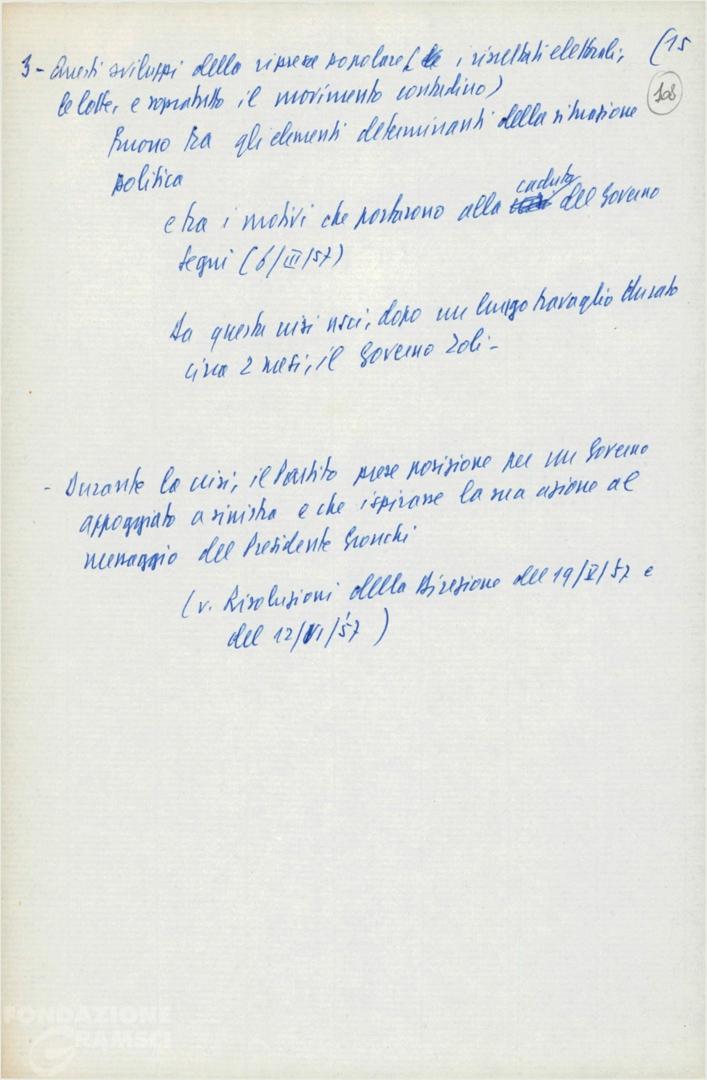 (15
108
3 - Questi sviluppi della ripresa popolare (i risultati elettorali,
le lotte, e sopratutto il movimento contadino)
furono tra gli elementi determinanti della situazione
politica
e tra i motivi che portarono alla caduta del Governo
Segni (6/III/57)
Da questa crisi uscì, dopo un lungo travaglio durato
circa 2 mesi, il Governo Zoli -
- Durante la crisi, il Partito prese posizione per un Governo
appoggiato a sinistra e che ispirasse la sua azione al
messaggio del Presidente Gronchi
(v. Risoluzioni della Direzione del 19/V/57 e
del 12/VI/57)
FONDAZIONE
GRAMSCI